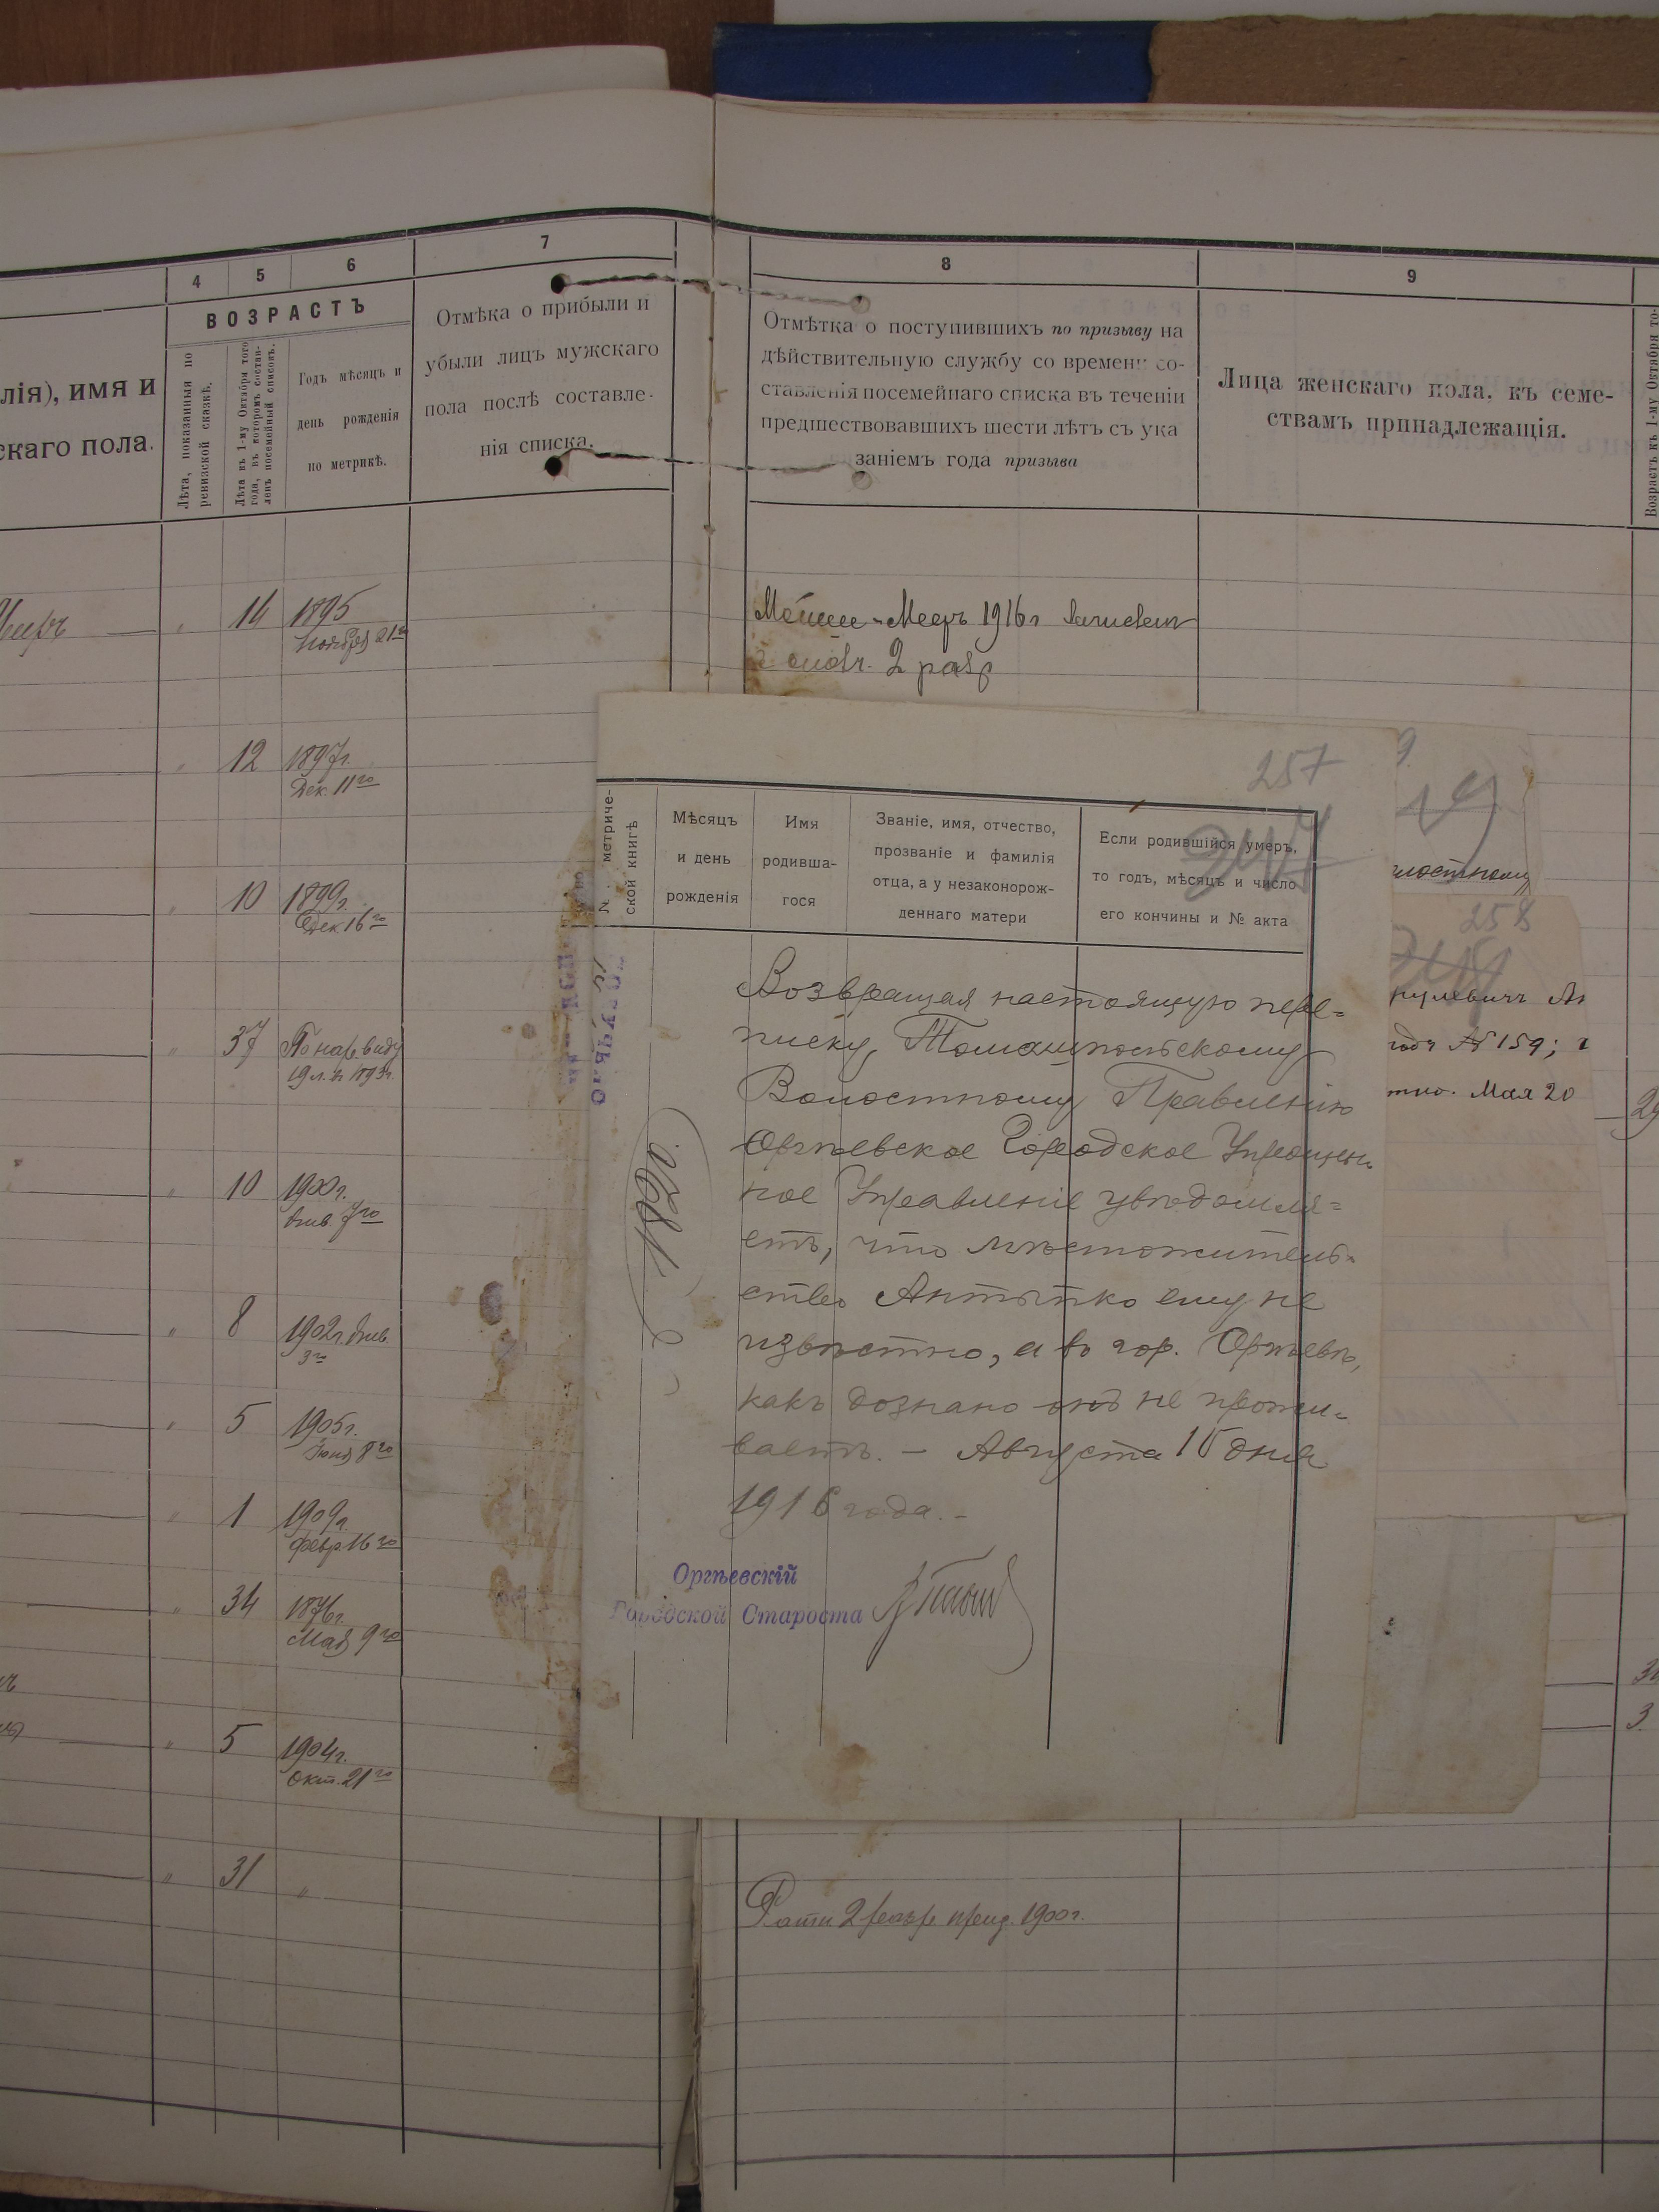 4
5
6
7
ВОЗРАСТЪ
лія), имя и
скаго пола.
Лѣта, показанныя по
ревизской сказкѣ.
Лѣта къ 1-му Октября того
года, въ которомъ состав-
ленъ посемейный списокъ.
Годъ мѣсяцъ и
день рожденія
по метрикѣ.
Отмѣка о прибыли и
убыли лицъ мужскаго
пола послѣ составле-
нія списка.
14 1895
Ноября 21го
12 1897г.
Дек. 11го
10 1899г.
Дек 16го
37 По нар. виду
19 л. въ 1893г.
10 1900г.
Янв. 7го
8 1902г. Янв.
3го
5 1905г.
Іюня 8го
1 1909г.
Февр. 16го
34 1876г.
Мая 9го
5 1904г.
Окт. 21го
31 "
8
9
Отмѣтка о поступившихъ по призыву на
дѣйствительную службу со времени со-
ставленія посемейнаго списка въ теченіи
предшествовавшихъ шести лѣтъ съ ука
заніемъ года призыва
Лица женскаго пола, къ семе-
ствамъ принадлежащія.
Возрастъ къ 1-му Октября то-
Мееръ 1916г
2 разр
257
№ по метриче-
ской книгѣ
Мѣсяцъ
и день
рожденія
Имя
родивша-
гося
Званіе, имя, отчество,
прозваніе и фамилія
отца, а у незаконорож-
деннаго матери
Если родившійся умеръ,
то годъ, мѣсяцъ и число
его кончины и № акта
Возвращая настоящую пере=
писку, Томашпольскому
Волостному Правленію
Оргѣевское Городское Упрощен-
ное Управленіе увѣдомля=
етъ, что мѣстожитель-
ство Антыпко ему не
извѣстно, а въ гор. Оргѣевѣ,
какъ дознано онъ не прожи-
ваетъ. – Августа 15 дня
1916 года. –
Оргѣевскій
Городской Староста
лостному
258
№ 159;
тно. Мая 20
Рати 2 разр. приз. 1900г.